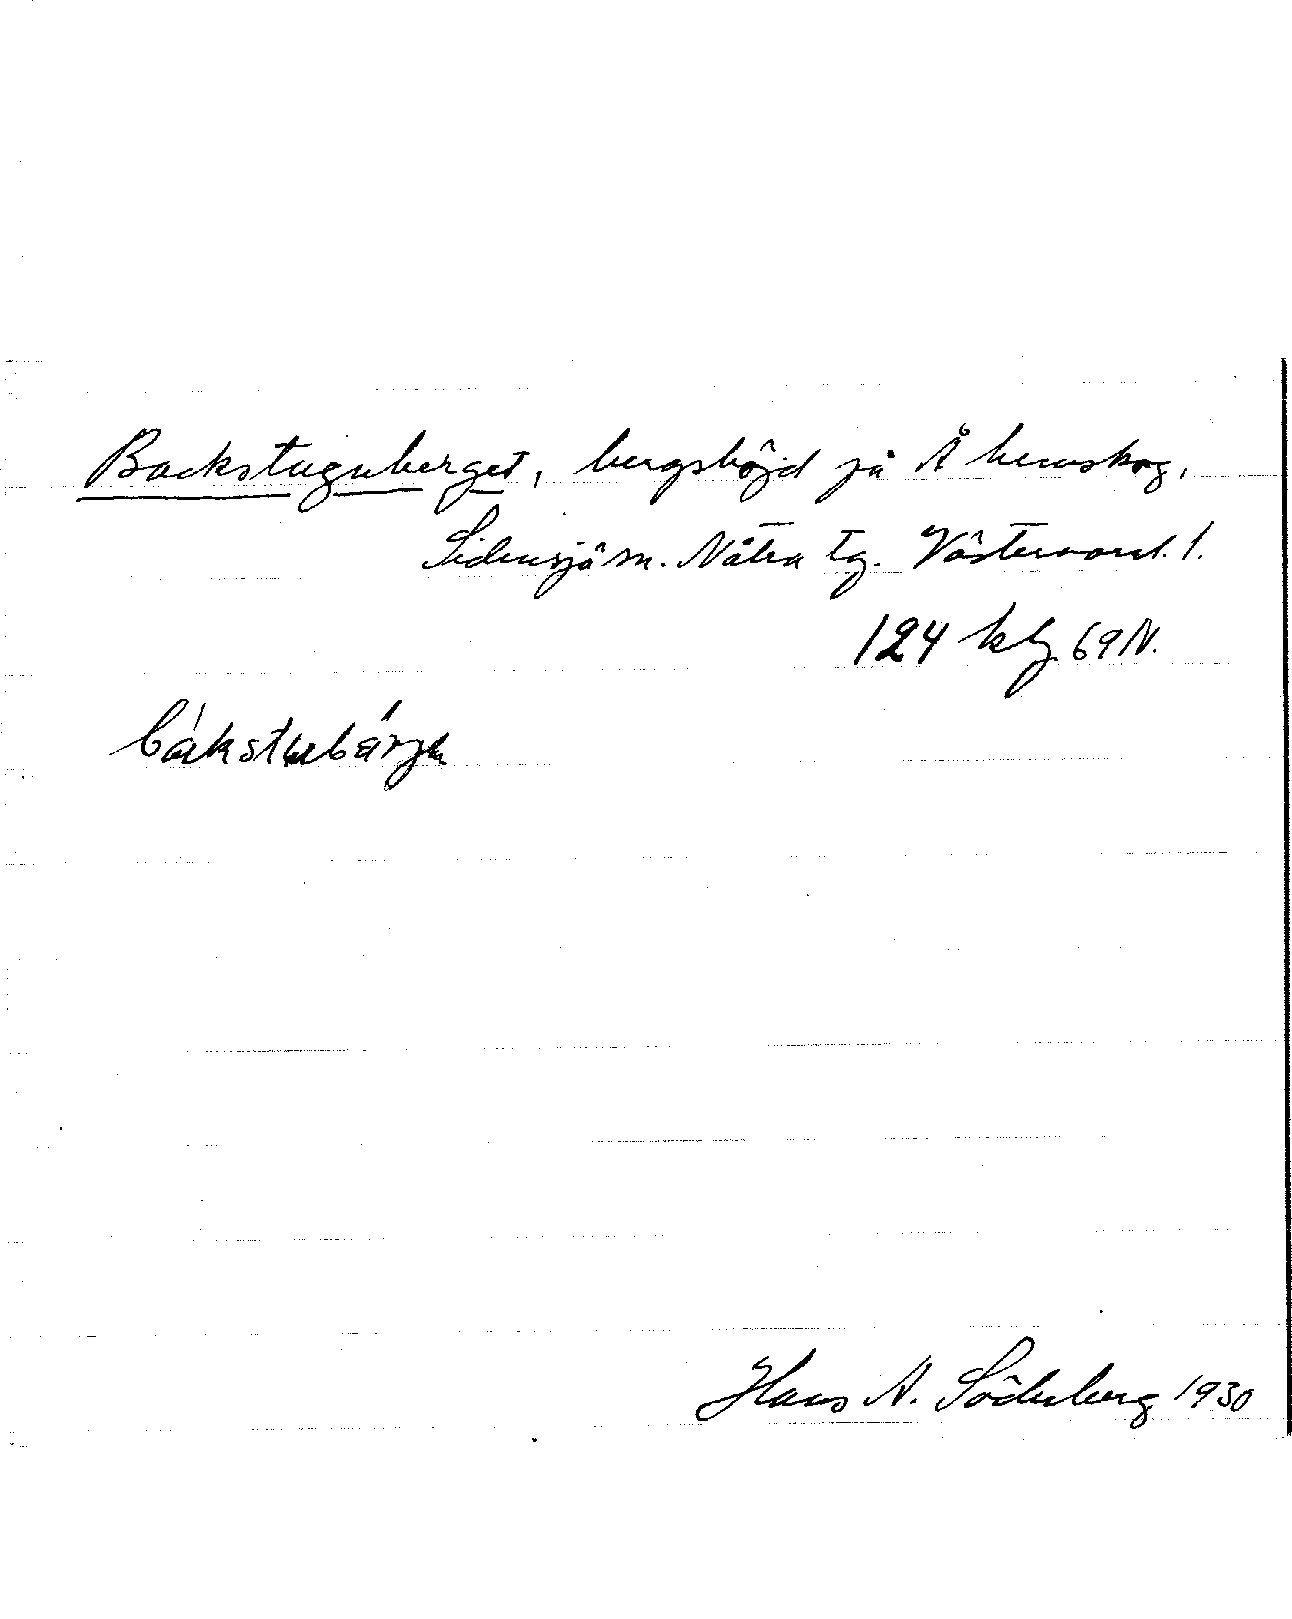 Backstuguberget, bergshöjd på Å hemskog,
Sidensjö sn. Nätra tg. Västernorrl. l.
124 kbg 69 N.
Hans A. Söderberg 1930